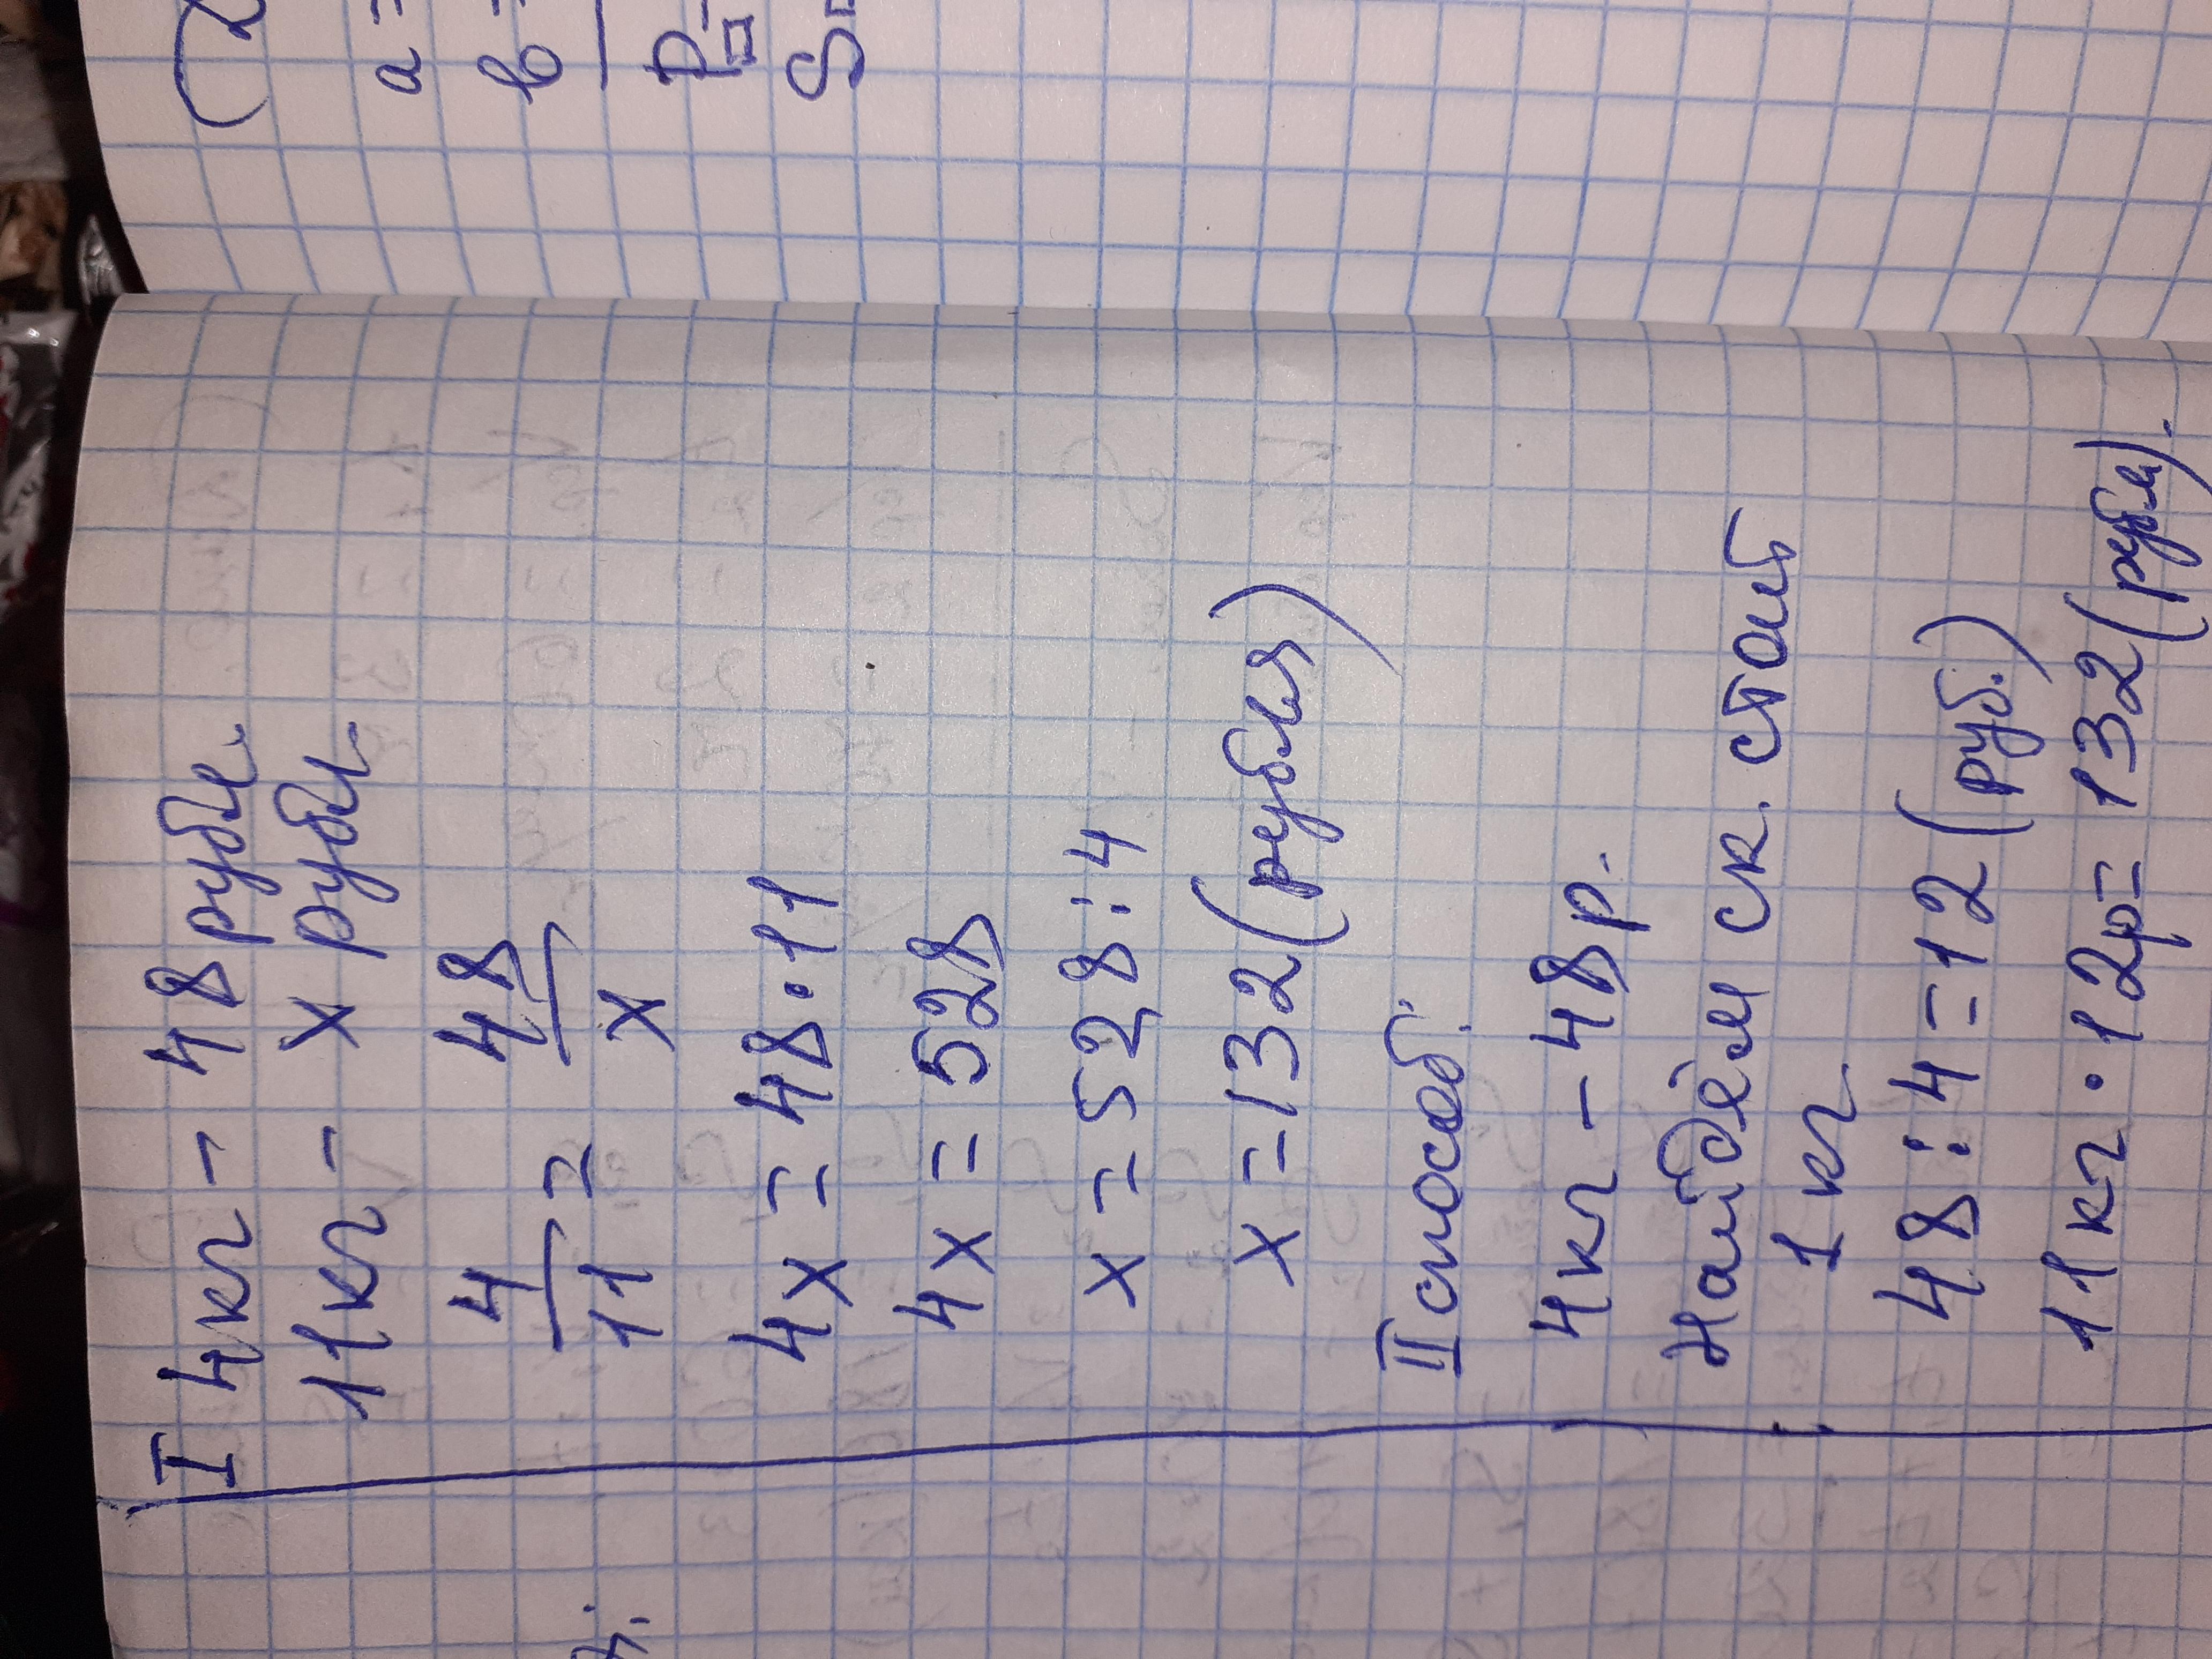 I 4кг – 48 рубл.
11кг – х рубл.
4/11 = 48/х
4х = 48·11
4х = 528
х = 528:4
х = 132(рубля)
II способ.
4кг – 48р.
Найдём ск. стоит
1 кг
48:4=12(руб.)
11кг·12р=132(рубля).
a =
b =
P =
S =